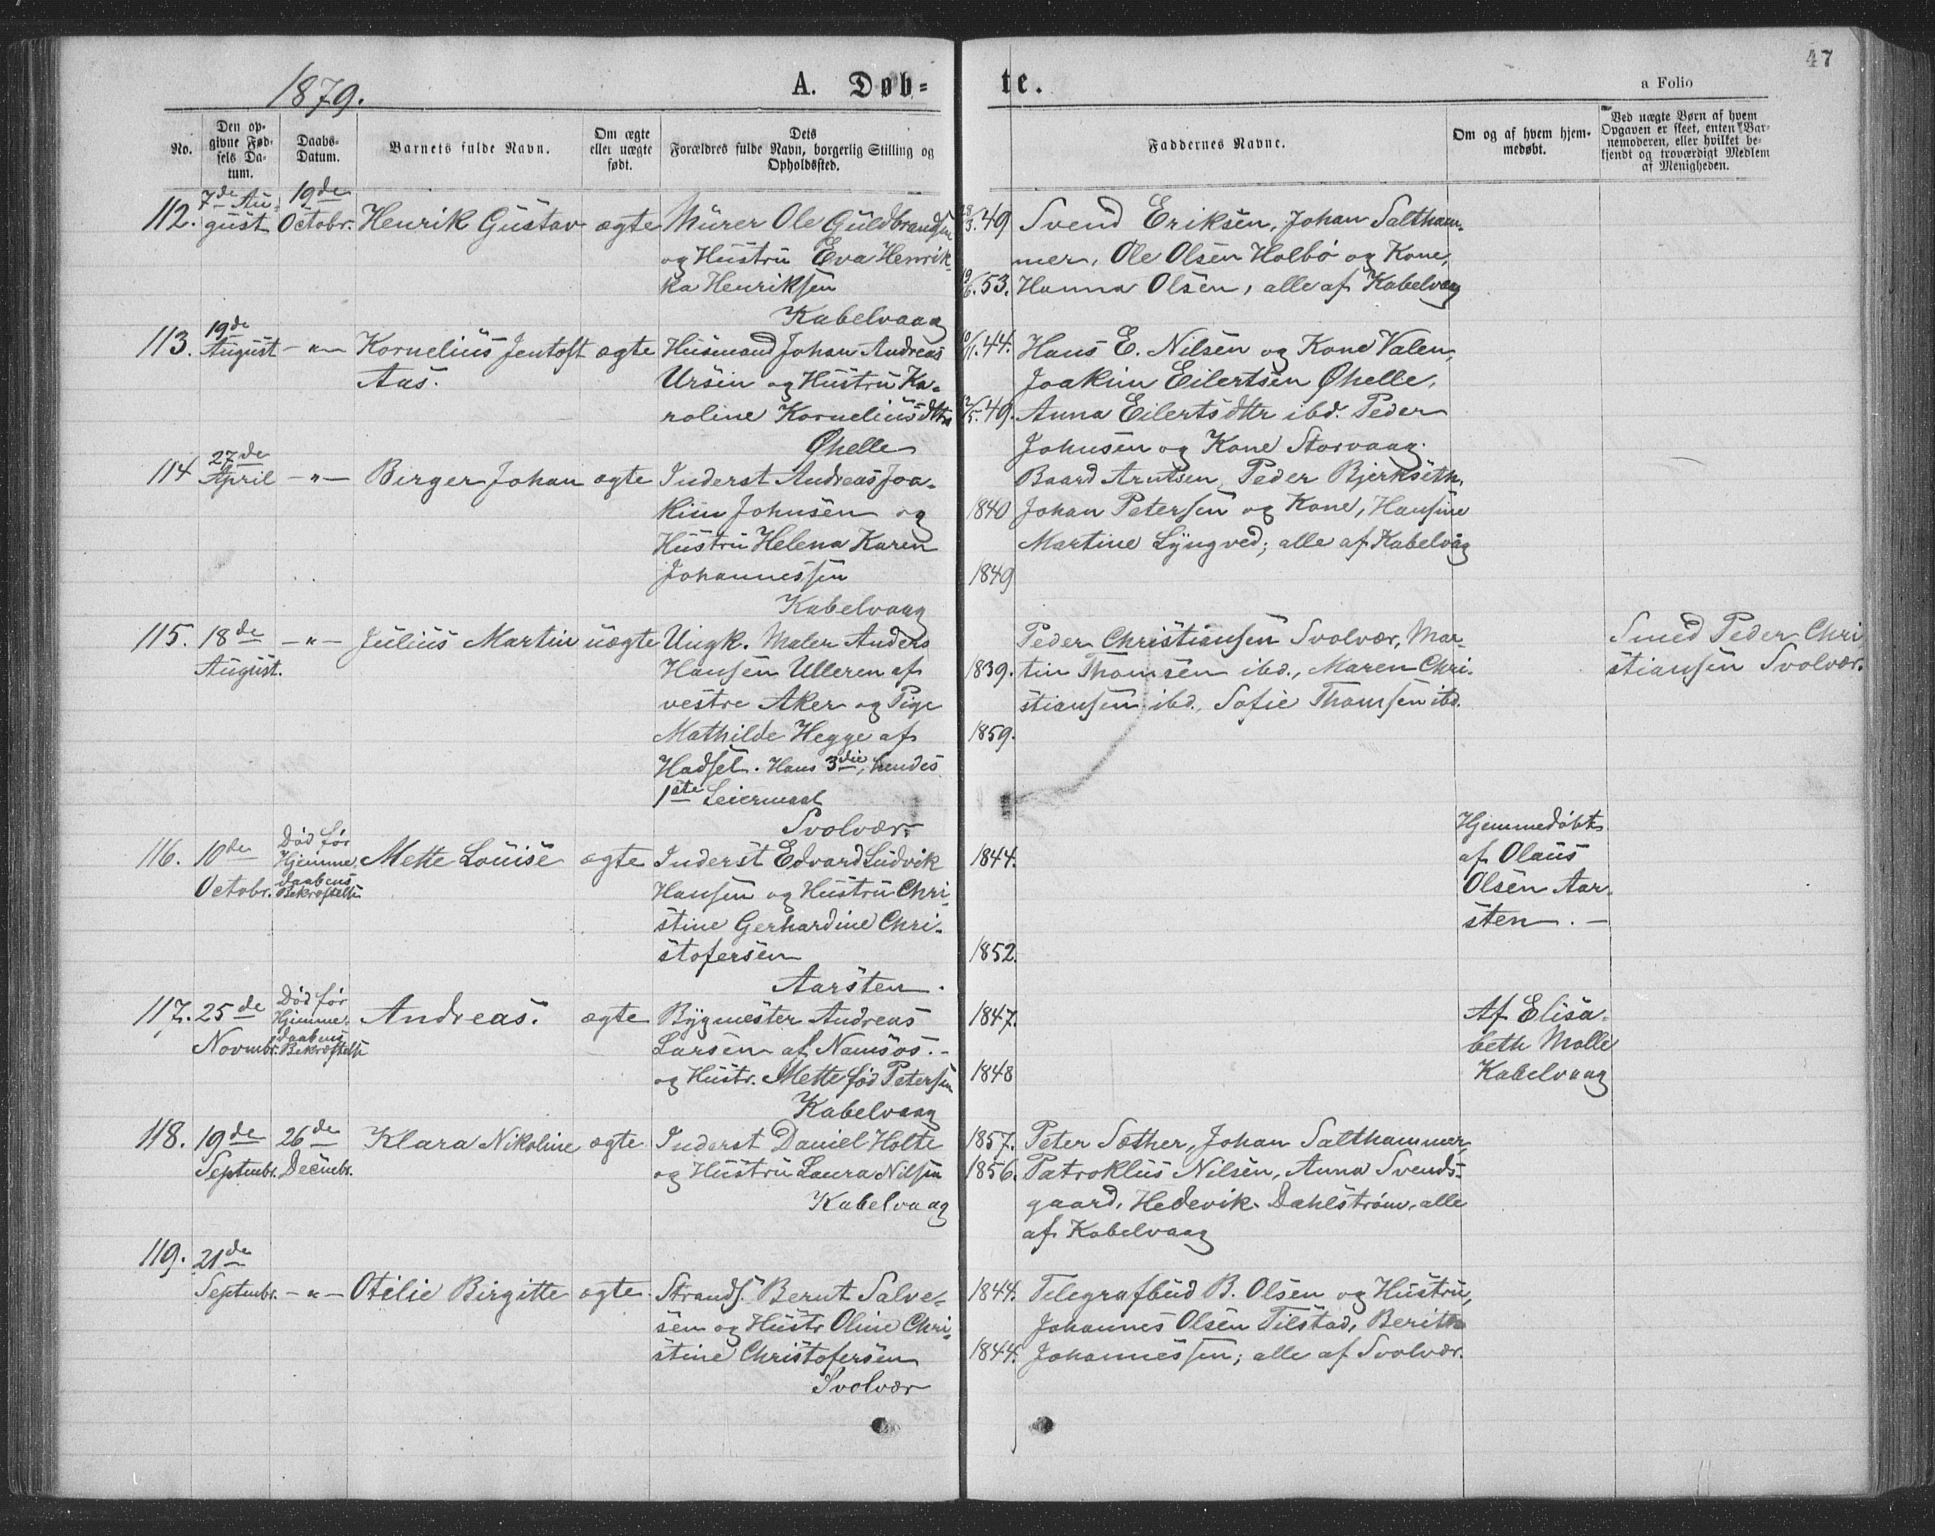 47
1879. A. Døb= te. a Folio
No.
Den op-
givne Fød-
sels Da-
tum.
Daabs-
Datum.
Barnets fulde Navn.
Om ægte
eller uægte
født.
Dets
Forældres fulde Navn, borgerlig Stilling og
Opholdssted.
Faddernes Navne.
Om og af hvem hjem-
medøbt.
Ved uægte Børn af hvem
Opgaven er skeet, enten Bar-
nemoderen, eller hvilket be-
kjendt og troværdigt Medlem
af Menigheden.
7de Au- 19de
112. gust Octobr. Henrik Gustav ægte Murer Ole Guldbrandsen 49 Svend Eriksen, Johan Saltham-
og Hustru Eva Henrik- mer, Ole Olsen Holbø og Kone,
ka Henriksen 53. Hanna Olsen, alle af Kabelvaag
Kabelvaag
19de
113. August -"- Kornelius Jentoft ægte Husmand Johan Andreas 44. Hans E. Nilsen og Kone Valen,
Aas. Ursin og Hustru Ka- Joakim Eilertsen Øhelle,
roline Korneliusdttr 49. Anna Eilertsdttr ibd. Peder
Øhelle Johnsen og Kone Storvaag.
27de
114 April -"- Birger Johan ægte Inderst Andreas Joa- Baard Arntsen, Peder Bjerkseth,
kim Johnsen og 1840 Johan Petersen og Kone, Hansine
Hustru Helena Karen Martine Lyngved; alle af Kabelvåg
Johannessen 1849
Kabelvaag
115. 18de -"- Julius Martin uægte Ungk. Maler Anders Peder Christiansen Svolvær, Mar- Smed Peder Chri
August. Hansen Ulleren af 1839. tin Thomsen ibd., Maren Chri- stiansen Svolvær.
vestre Aker og Pige stiansen ibd. Sofie Thomsen ibd.
Mathilde Hegge af 1859.
Hadsel. Hans 3die, hendes
1ste Leiermaal
Svolvær.
116. 10de Død før Mette Louise ægte Inderst Edvard Ludvik 1844. Hjemmedøbt
Octobr. Hjemme- Hansen og Hustru Chri- af Olaus
daabens stine Gerhardine Chri- Olsen Aar-
Bekræftelse stofersen 1852. sten. -
Aarsten.
117. 25de Død før Andreas. ægte Bygmester Andreas 1847. Af Elisa-
Novmbr. Hjemme- Larsen af Namsos. - beth Molle
daabens og Hustr. Mette fød Petersen 1848 Kabelvaag
Bekræftelse Kabelvaag
118. 19de 26de Klara Nikoline ægte Inderst Daniel Holte 1857. Peter Sæther, Johan Salthammer,
Septmbr. Decmbr. og Hustru Laura Nilsen 1856. Patroklus Nilsen, Anna Svends-
Kabelvaag gaard, Hedevik Dahlstrøm, alle
af Kabelvaag
119. 21de
Septmbr. -"- Otilie Birgitte ægte Strands. Bernt Salve- 1844. Telegrafbud B. Olsen og Hustru,
sen og Hustr Oline Chri- Johannes Olsen Tilstad, Berith
stine Christofersen 1844. Johannessen; alle af Svolvær.
Svolvær